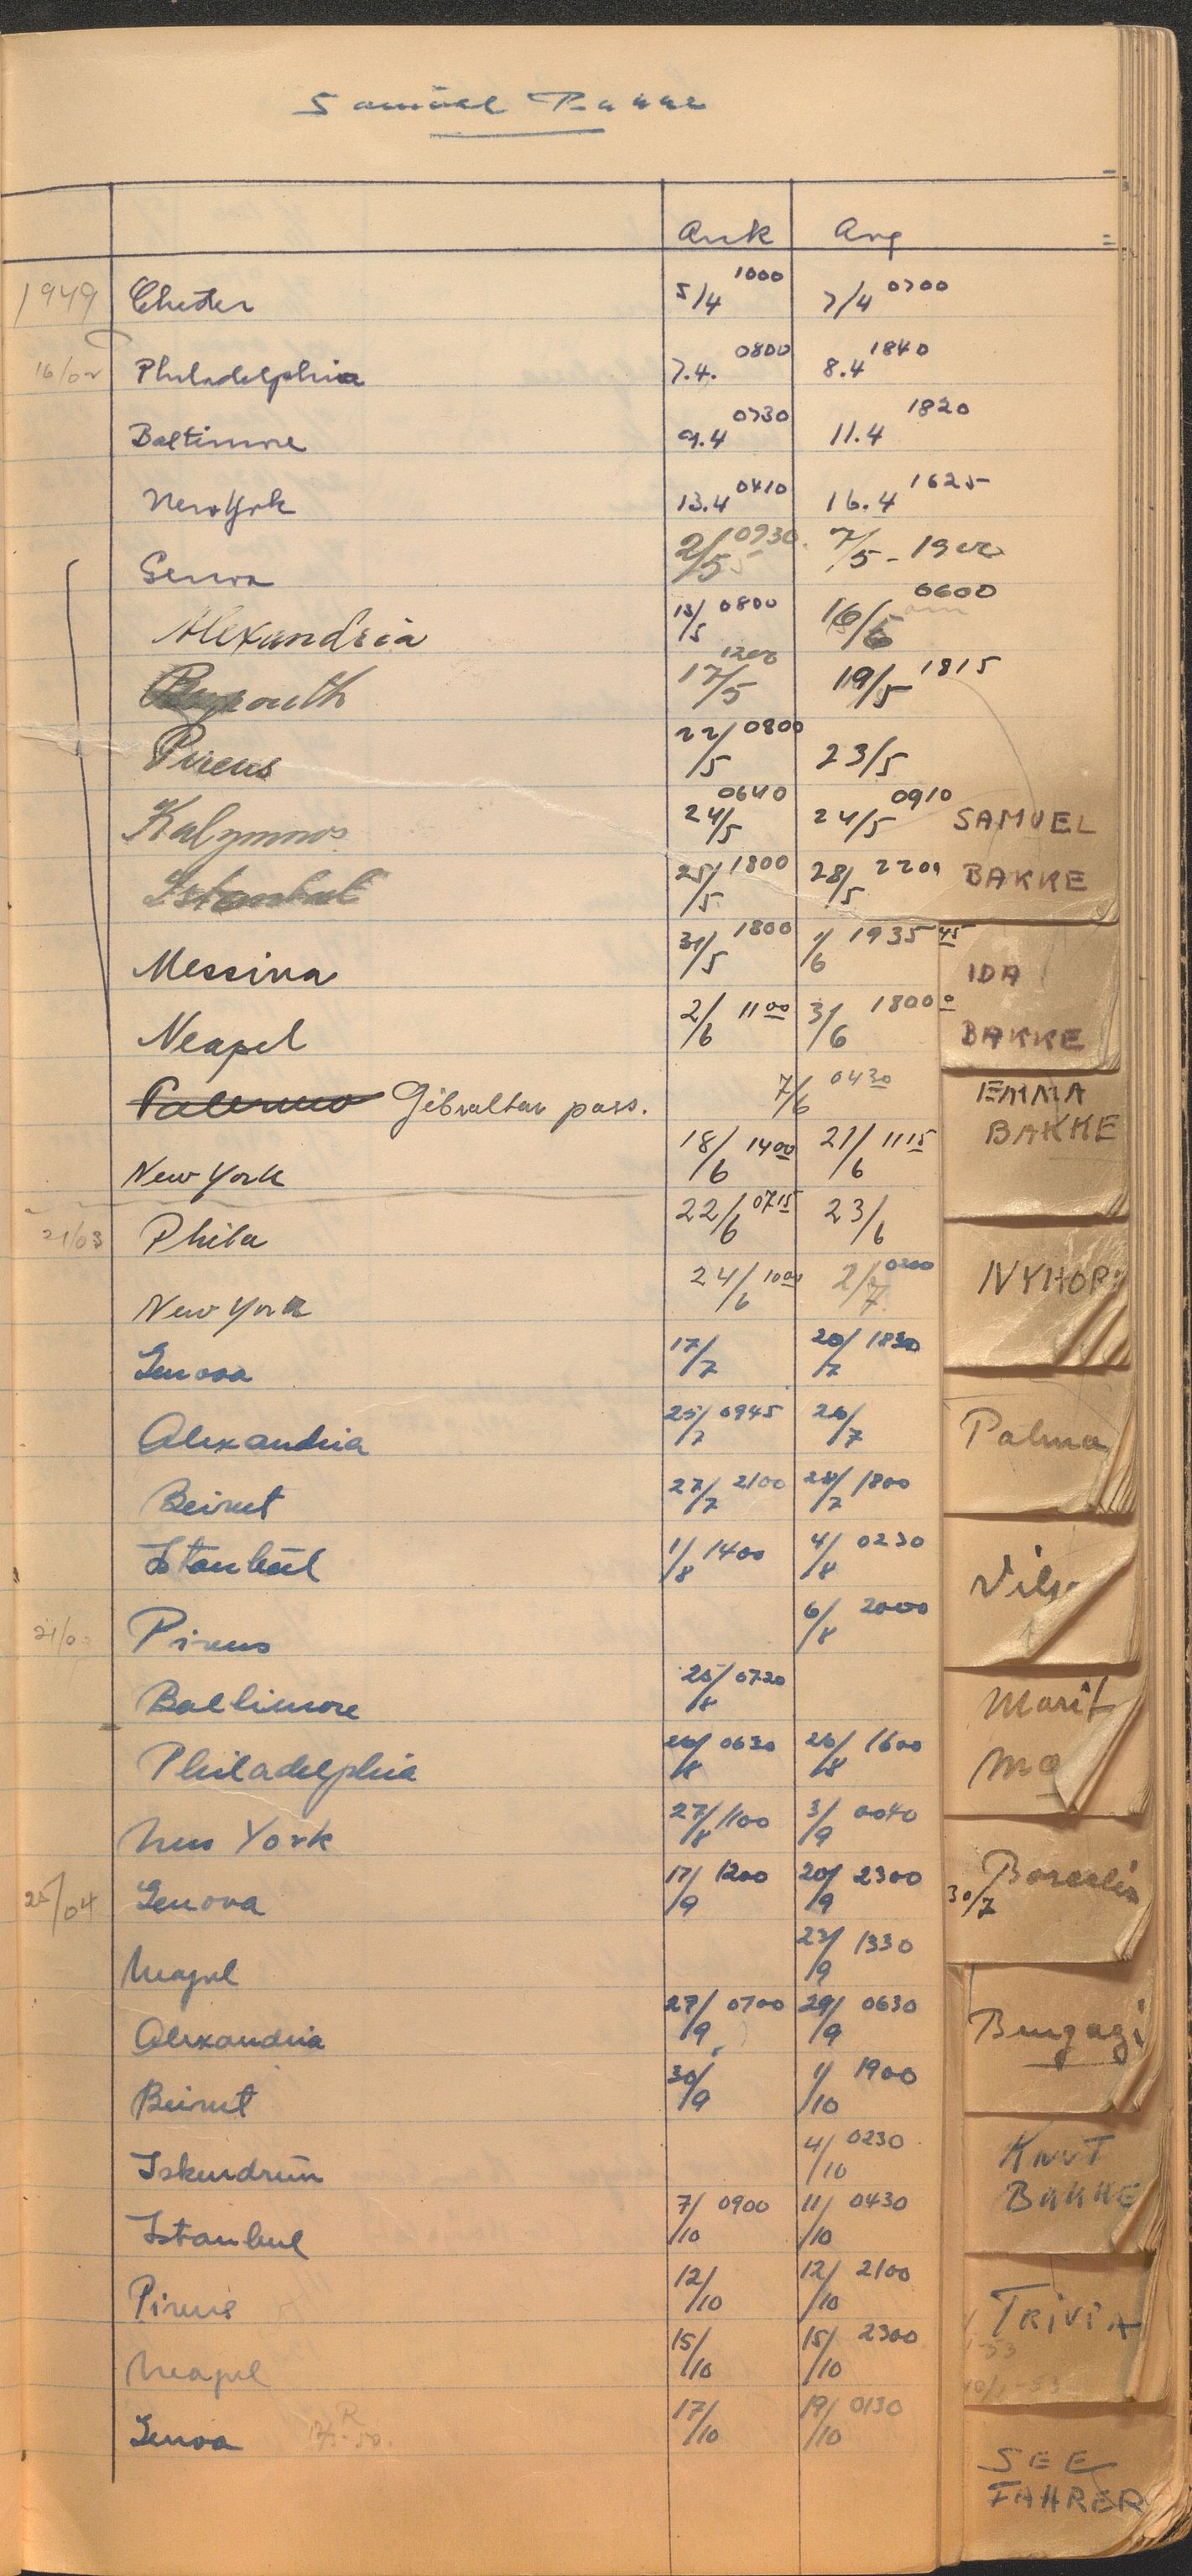 Samuel Bakke
Ank Avg
1949 Chester 5/4 1000 7/4 0700
16/02 Philadelphia 7.4. 0800 8.4 1840
Baltimore 9.4 0730 11.4 1820
New York 13.4 0410 16.4 1625
Genoa 2/5 0730. 7/5 - 1900
Alexandria 13/5 0800 16/5 0600
Beyrouth 17/5 1200 19/5 1815
Pireus 22/5 0800 23/5
Kalymnos 24/5 0640 24/5 0910
Istanbul 25/5 1800 28/5 2200
Messina 31/5 1800 1/6 1935 45
Neapel 2/6 1100 3/6 1800
Palermo Gibraltar pass. 7/6 0430
New York 18/6 1400 21/6 1115
21/03 Phila 22/6 0715 23/6
New York 24/6 1000 2/7 0200
Genova 17/7 20/7 1830
Alexandria 25/7 0945 26/7
Beirut 27/7 2100 28/7 1800
Istanbul 1/8 1400 4/8 0230
Pireus 6/8 2000
Baltimore 25/8 0720
Philadelphia 26/8 0630 26/8 1600
New York 27/8 1100 3/9 0040
25/04 Genova 17/9 1200 20/9 2300
Neapel 23/9 1330
Alexandria 27/9 0700 29/9 0630
Beirut 30/9 1/10 1900
Iskendrun 4/10 0230
Istanbul 7/10 0900 11/10 0430
Pireus 12/10 12/10 2100
Neapel 15/10 15/10 2300
Genoa 17/10 19/10 0130
SAMUEL
BAKKE
IDA
BAKKE
EMMA
BAKKE
NYHOR
Palma
Vils
Marit
Mæ
30/7
Bengazi
KNUT
BAKKE
TRIVIA
SEE
FAHRER